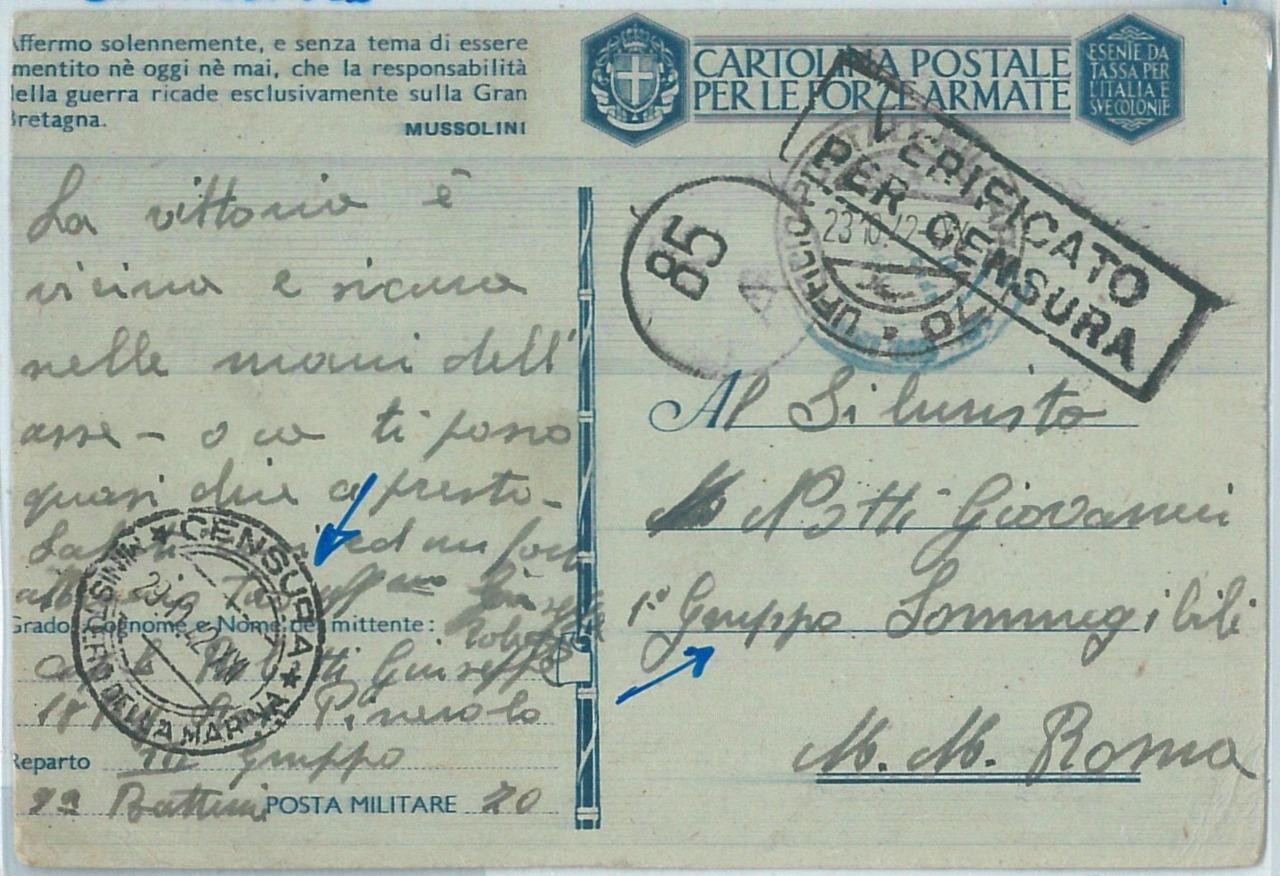 Affermo solennemente, e senza tema di essere
mentito nè oggi nè mai, che la responsabilità
della guerra ricade esclusivamente sulla Gran
Bretagna.
MUSSOLINI
CARTOLINA POSTALE
PER LE FORZE ARMATE
ESENTE DA
TASSA PER
L'ITALIA E
SVE COLONIE
VERIFICATO
PER CENSURA
85
A
UFFICIO
23 10 42
70
La vittoria è
vicina e sicura
nelle mani dell'
asse - o ca ti posso
quasi dire a presto -
ed un
CENSURA
MINISTERO DELLA MARINA
Grado, Cognome e Nome del mittente:
Giuseppe
Pinerolo
Reparto III Gruppo
2a POSTA MILITARE 70
Al Silurista
Notti Giovanni
1° Gruppo Sommergibili
M. M. Roma